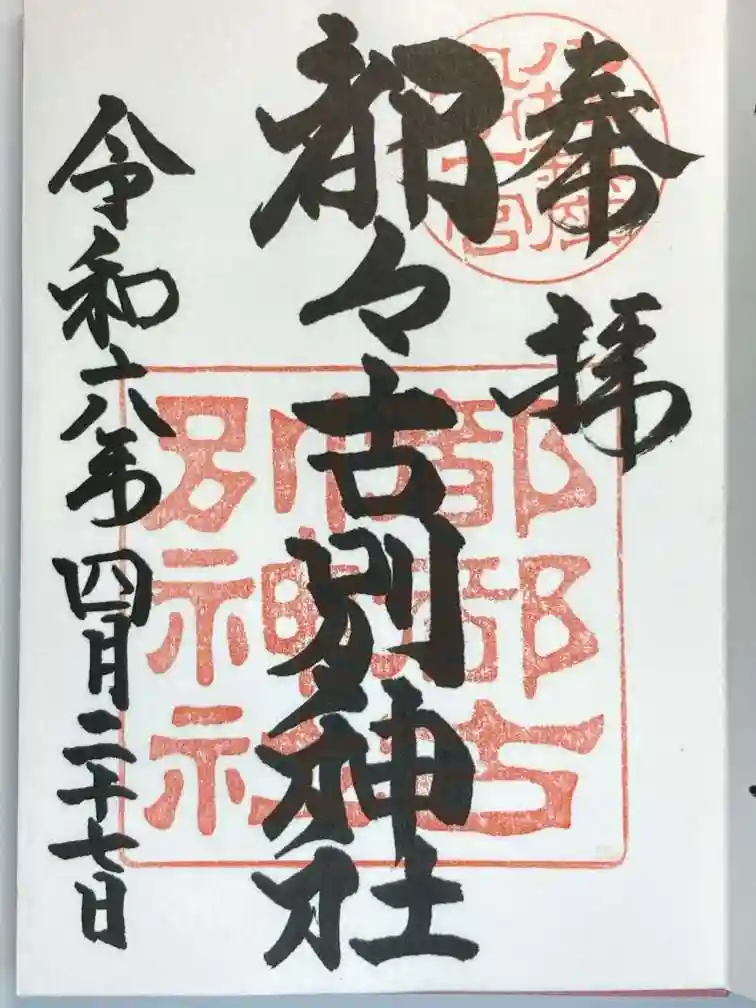 奉拝
都々古別神社
都都古別神社
令和六年四月二十七日